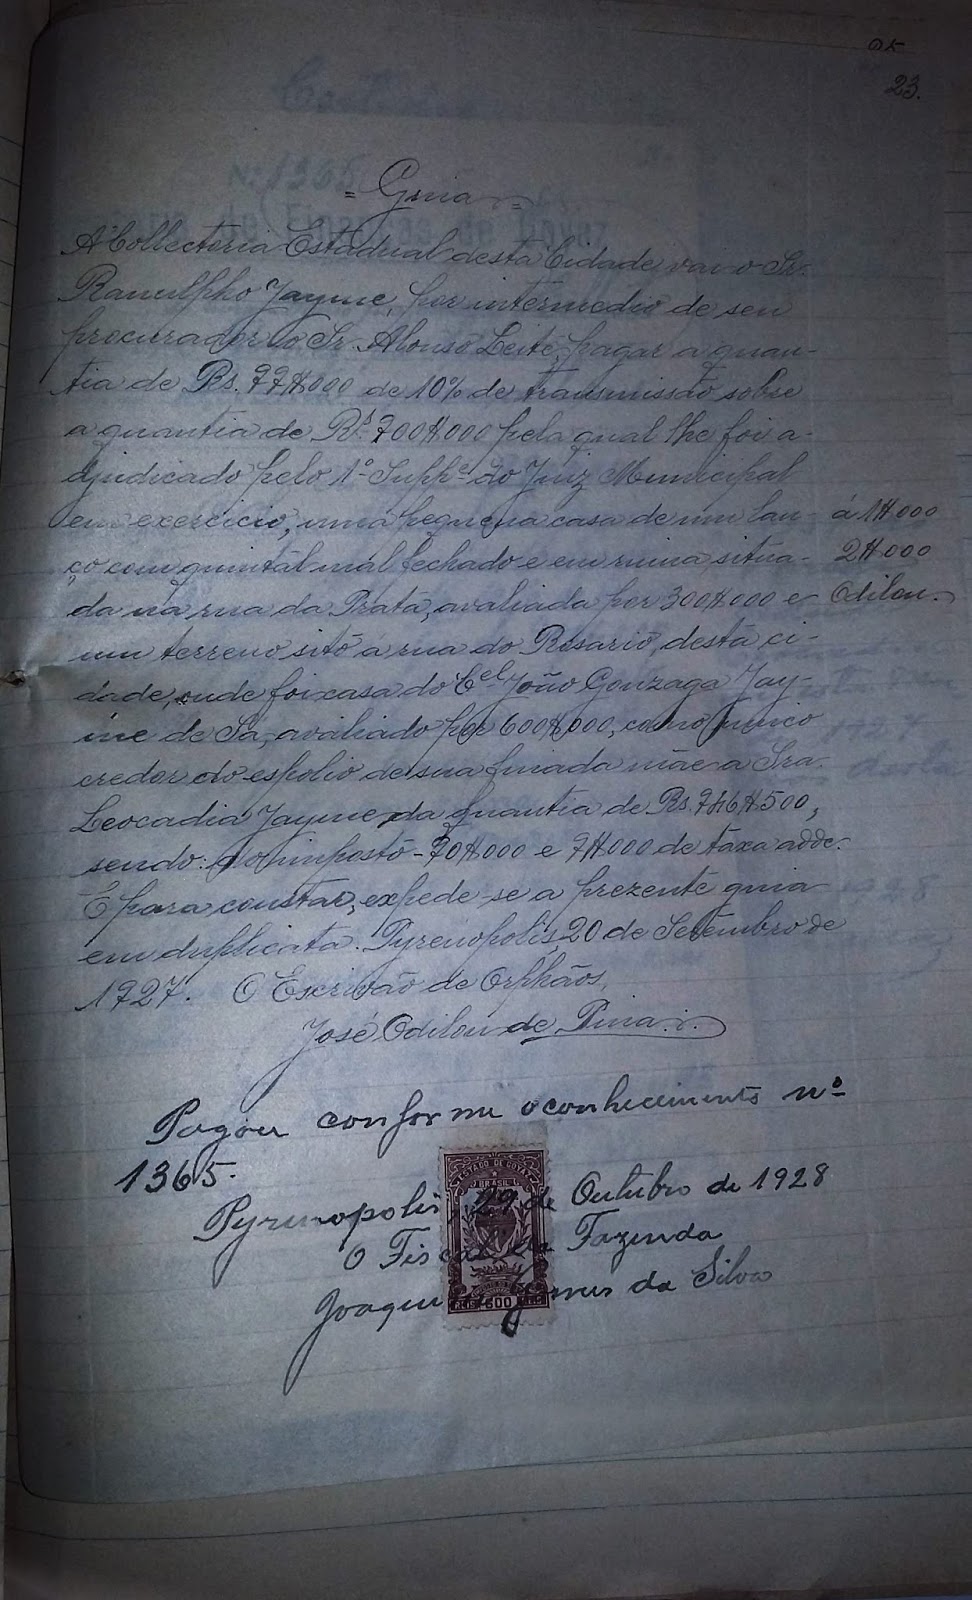 23.
= Guia =
A Collectoria Estadual desta Cidade vai o Sr.
Ranulpho Jayme, por intermedio de seu
procurador o Sr. Alonso Leite, pagar a quan-
tia de Rs. 77$000 de 10% de transmissão sobre
a quantia de Rs. 700$000 pela qual lhe foi a-
djudicado pelo 1º Suppe. do Juiz Municipal
em exercicio, uma pequena casa de um lan-
ço com quintal mal fechado e em ruina situa-
da na rua da Prata, avaliada por 300$000 e
um terreno sito á rua do Rosario, desta ci-
dade, onde foi casa do Cel. João Gonzaga Jay-
me de Sá, avaliado por 600$000, como unico
credor do espolio de sua finada mãe a Sra.
Leocadia Jayme, da quantia de Rs. 746$500,
sendo: do imposto - 70$000 e 7$000 de taxa adde.
E para constar, expede-se a prezente guia
em duplicata. Pyrenopolis 20 de Setembro de
1927. O Escrivão de Orphãos,
José Odilon de Pina
á 1$000
2$000
Odilon.
Pagou conforme o conhecimento nº
1365.
Pyrenopolis, 29 de Outubro de 1928
O Fiscal da Fazenda
Joaquim Gomes da Silva
ESTADO DE GOYAZ
BRASIL
REIS 600 REIS